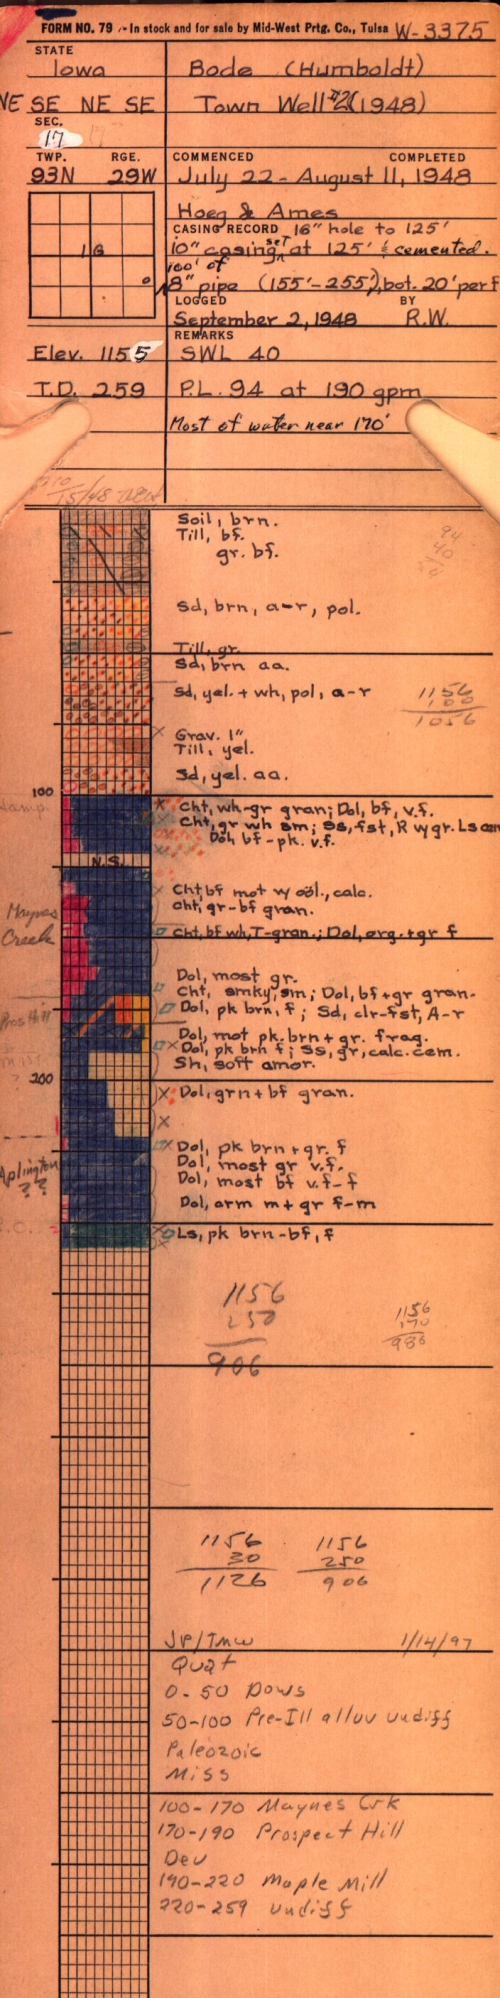 FORM NO. 79 - In stock and for sale by Mid-West Prtg. Co., Tulsa W-3375
STATE
Iowa Bode (Humboldt)
NE SE NE SE Town Well #2 (1948)
SEC.
17 17
TWP. RGE. COMMENCED COMPLETED
93N 29W July 22 - August 11, 1948
Hoeg & Ames
CASING RECORD 16" hole to 125'
10" casing set at 125' & cemented.
100' of
8" pipe (155'-255'), bot. 20' perf
LOGGED BY
September 2, 1948 R.W.
REMARKS
Elev. 1155 SWL 40
T.D. 259 P.L. 94 at 190 gpm
Most of water near 170'
Soil, brn.
Till, bf.
gr. bf.
94
40
Sd, brn, a-r, pol.
Till, gr.
Sd, brn aa.
Sd, yel. + wh, pol, a-r
1156
100
1056
Grav. 1"
Till, yel.
Sd, yel. aa.
100
Cht, wh-gr gran; Dol, bf, v.f.
Cht, gr wh sm; Ss, fst, R w gr. Ls cem
Dol, bf-pk. v.f.
N.S.
Cht, bf mot w/ ool., calc.
Cht, gr-bf gran.
Maynes
Creek
Cht, bf wh, T-gran.; Dol, org. + gr f
Dol, most gr.
Cht, smky, sm; Dol, bf + gr gran.
Dol, pk brn, f; Sd, clr-fst, A-r
Pros Hill
Dol, mot pk. brn + gr. frag.
Dol, pk brn f; Ss, gr, calc. cem.
Sh, soft amor.
200
Dol, grn + bf gran.
Dol, pk brn + gr. f
Dol, most gr v.f.
Dol, most bf v.f-f
Aplington
? ?
Dol, arm m + gr f-m
Ls, pk brn-bf, f
1156
250
906
1156
170
986
1156 1156
30 250
1126 906
JP/TMW 1/14/97
Quat
0-50 Dows
50-100 Pre-Ill alluv undiff
Paleozoic
Miss
100-170 Maynes Crk
170-190 Prospect Hill
Dev
190-220 Maple Mill
220-259 undiff